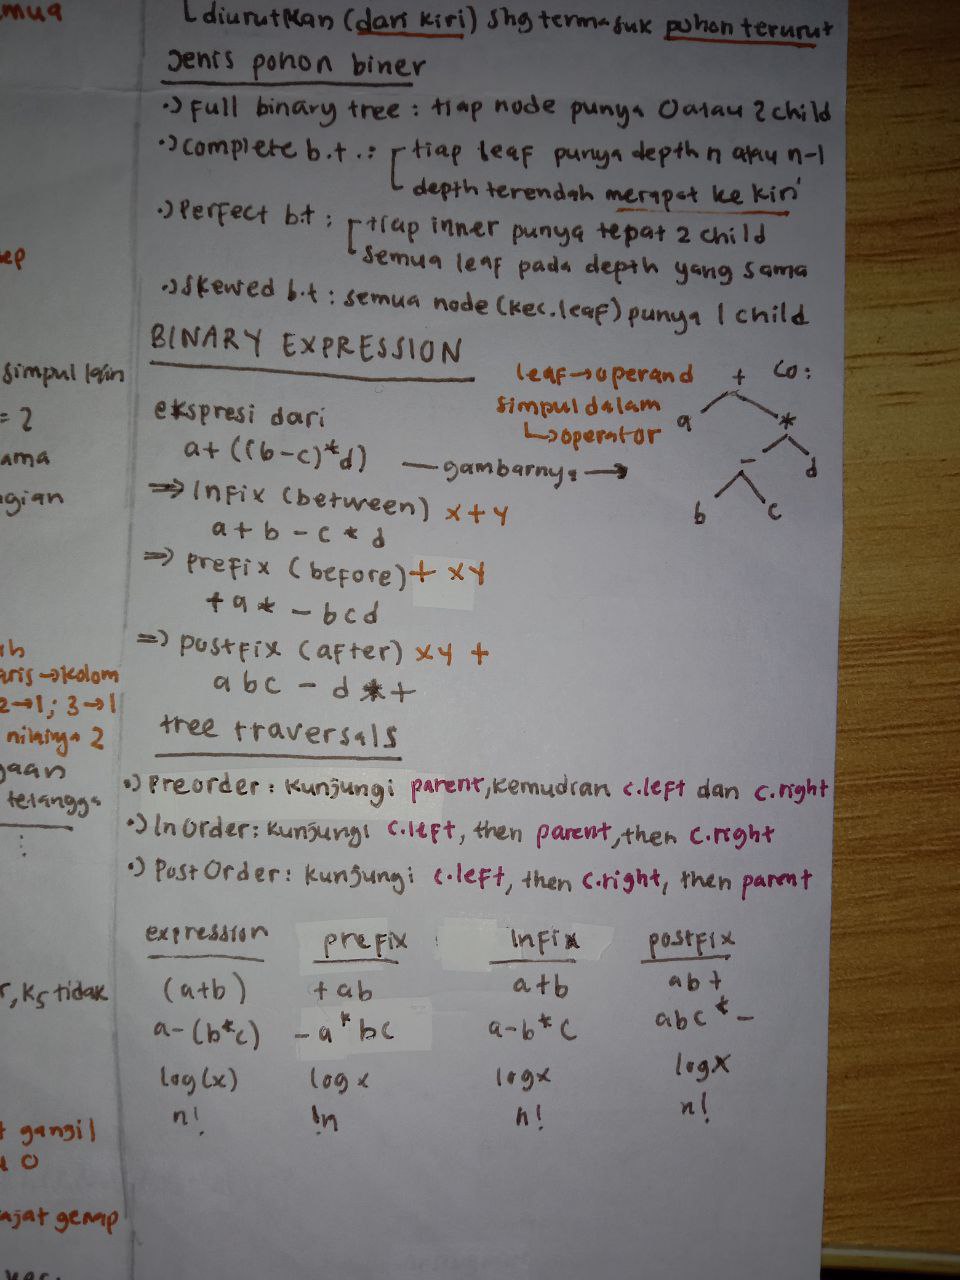 emua
ep
simpul lain
= 2
ama
gian
ah
aris → kolom
2→1; 3→1
nilainya 2
gaan
telangga
:
r, K5 tidak
t ganjil
u 0
ajat genap
diurutkan (dari kiri) shg termasuk pohon terurut
Jenis pohon biner
•) Full binary tree : tiap node punya 0 atau 2 child
•) complete b.t. : tiap leaf punya depth n atau n-1
depth terendah merapat ke kiri
•) Perfect b.t : tiap inner punya tepat 2 child
semua leaf pada depth yang sama
•) Skewed b.t : semua node (kec. leaf) punya 1 child
BINARY EXPRESSION
leaf → operand
simpul dalam
↳ operator
co :
+
a *
- d
b c
ekspresi dari
a+ ((b-c)*d) — gambarnya →
=> Infix (between) x + y
a + b - c * d
=> prefix (before) + xy
+ a * - b c d
=> postfix (after) xy +
a b c - d * +
tree traversals
•) Preorder : kunjungi parent, kemudian c.left dan c.right
•) InOrder : kunjungi c.left, then parent, then c.right
•) PostOrder : kunjungi c.left, then c.right, then parent
expression prefix Infix postfix
(a+b) +ab a+b ab+
a-(b*c) -a*bc a-b*c abc*-
log(x) log x log x log x
n! !n n! n!